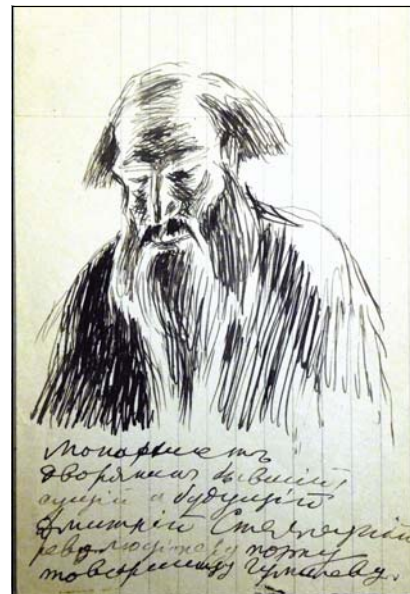 Монархистъ
дворянинъ бывшій,
сущій и будущій
Дмитрій Стеллецкій
революціонеру поэту
товарищу Гумилеву.